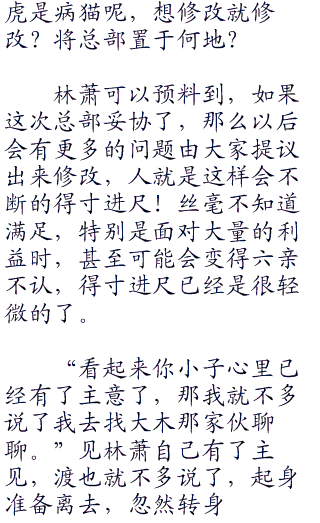 虎是病猫呢，想修改就修
改？将总部置于何地？
林萧可以预料到，如果
这次总部妥协了，那么以后
会有更多的问题由大家提议
出来修改，人就是这样会不
断的得寸进尺！丝毫不知道
满足，特别是面对大量的利
益时，甚至可能会变得六亲
不认，得寸进尺已经是很轻
微的了。
“看起来你小子心里已
经有了主意了，那我就不多
说了我去找大木那家伙聊
聊。”见林萧自己有了主
见，渡也就不多说了，起身
准备离去，忽然转身